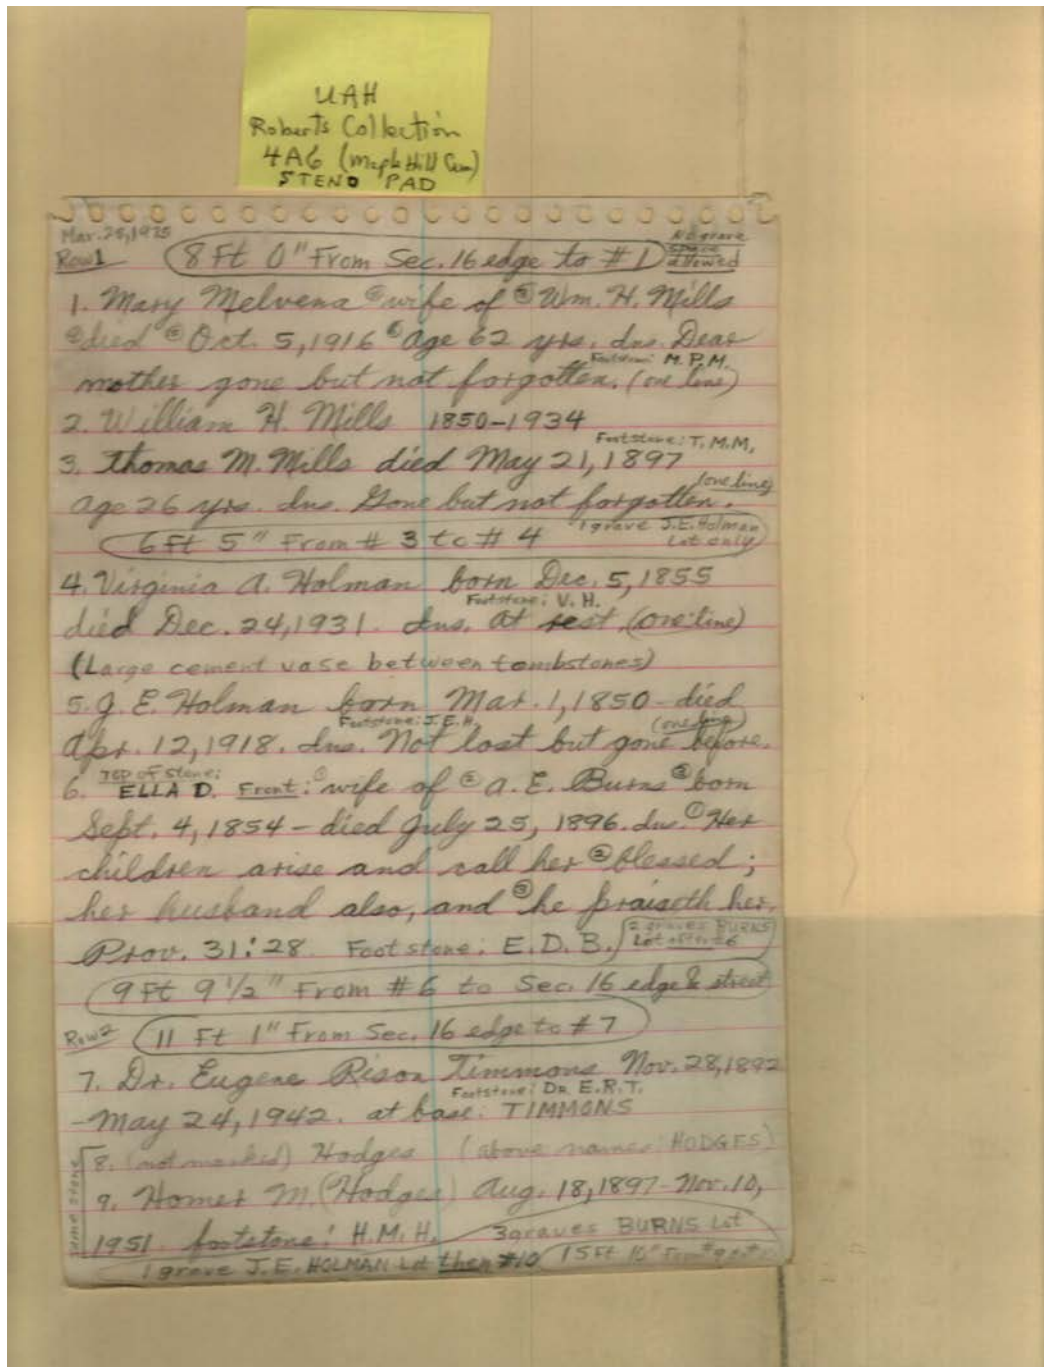 UAH
Roberts Collection
4A6 (Maple Hill Cem)
STENO PAD
Mar. 25, 1975
No grave
space
allowed
Row 1 8 Ft 0" From Sec. 16 edge to #1
1. Mary Melvena ② wife of ③ Wm. H. Mills
④ died ⑤ Oct. 5, 1916 ⑥ age 62 yrs. dns. Dear
Footstone: M.P.M.
mother gone but not forgotten. (one line)
2. William H. Mills 1850-1934
Footstone: T.M.M.
3. Thomas M. Mills died May 21, 1897
(one line)
age 26 yrs. dns. Gone but not forgotten.
6 Ft 5" From #3 to #4 1 grave J.E. Holman
Lot only
4. Virginia A. Holman born Dec. 5, 1855
Footstone: V.H.
died Dec. 24, 1931. dns. At rest (one line)
(Large cement vase between tombstones)
5. J. E. Holman born Mar. 1, 1850 - died
Footstone: J.E.H. (one line)
Apr. 12, 1918. dns. Not lost but gone before.
Top of stone:
6. ELLA D. Front: ① wife of ② A. E. Burns ③ born
Sept. 4, 1854 - died July 25, 1896. dns. ① Her
children arise and call her ② blessed;
her husband also, and ③ he praiseth her.
Prov. 31:28. Footstone: E.D.B. 2 graves BURNS
Lot after #6
9 Ft 9 1/2" From #6 to Sec. 16 edge & street
Row 2 11 Ft 1" From Sec. 16 edge to #7
7. Dr. Eugene Rison Timmons Nov. 28, 1892
Footstone: DR. E.R.T.
- May 24, 1942. at base: TIMMONS
same stone
8. (not marked) Hodges (above names: HODGES)
9. Homer M. (Hodges) Aug. 18, 1897 - Nov. 10,
1951. footstone: H.M.H. 3 graves BURNS Lot
1 grave J.E. HOLMAN Lot then #10 15 Ft 10" From #9 to #10